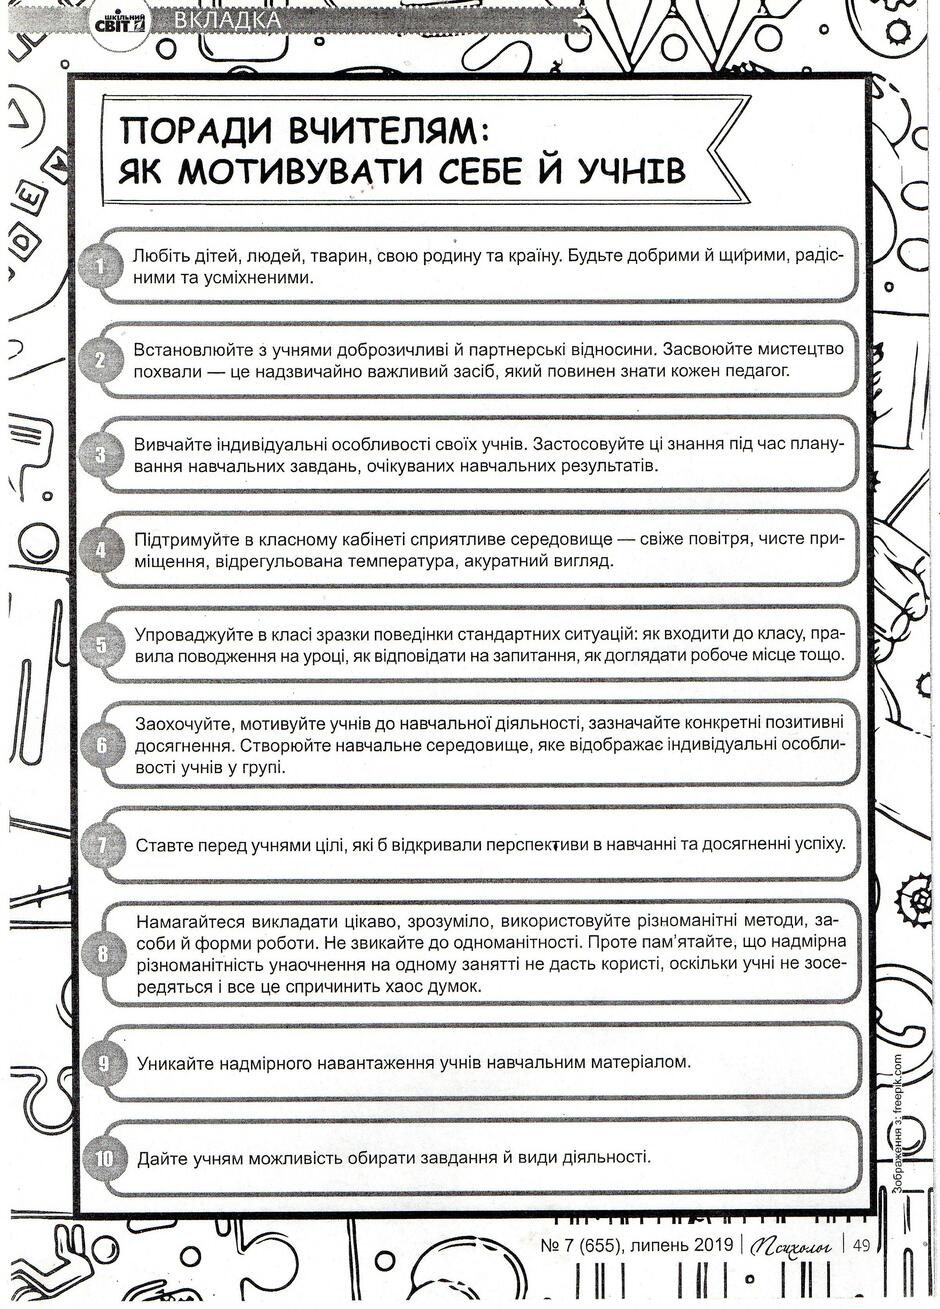 шкільний
СВІТ
ВКЛАДКА
ПОРАДИ ВЧИТЕЛЯМ:
ЯК МОТИВУВАТИ СЕБЕ Й УЧНІВ
1
Любіть дітей, людей, тварин, свою родину та країну. Будьте добрими й щирими, радіс-
ними та усміхненими.
2
Встановлюйте з учнями доброзичливі й партнерські відносини. Засвоюйте мистецтво
похвали — це надзвичайно важливий засіб, який повинен знати кожен педагог.
3
Вивчайте індивідуальні особливості своїх учнів. Застосовуйте ці знання під час плану-
вання навчальних завдань, очікуваних навчальних результатів.
4
Підтримуйте в класному кабінеті сприятливе середовище — свіже повітря, чисте при-
міщення, відрегульована температура, акуратний вигляд.
5
Упроваджуйте в класі зразки поведінки стандартних ситуацій: як входити до класу, пра-
вила поводження на уроці, як відповідати на запитання, як доглядати робоче місце тощо.
6
Заохочуйте, мотивуйте учнів до навчальної діяльності, зазначайте конкретні позитивні
досягнення. Створюйте навчальне середовище, яке відображає індивідуальні особли-
вості учнів у групі.
7
Ставте перед учнями цілі, які б відкривали перспективи в навчанні та досягненні успіху.
8
Намагайтеся викладати цікаво, зрозуміло, використовуйте різноманітні методи, за-
соби й форми роботи. Не звикайте до одноманітності. Проте пам'ятайте, що надмірна
різноманітність унаочнення на одному занятті не дасть користі, оскільки учні не зосе-
редяться і все це спричинить хаос думок.
9
Уникайте надмірного навантаження учнів навчальним матеріалом.
10
Дайте учням можливість обирати завдання й види діяльності.
Зображення з: freepik.com
№ 7 (655), липень 2019 | Психолог | 49